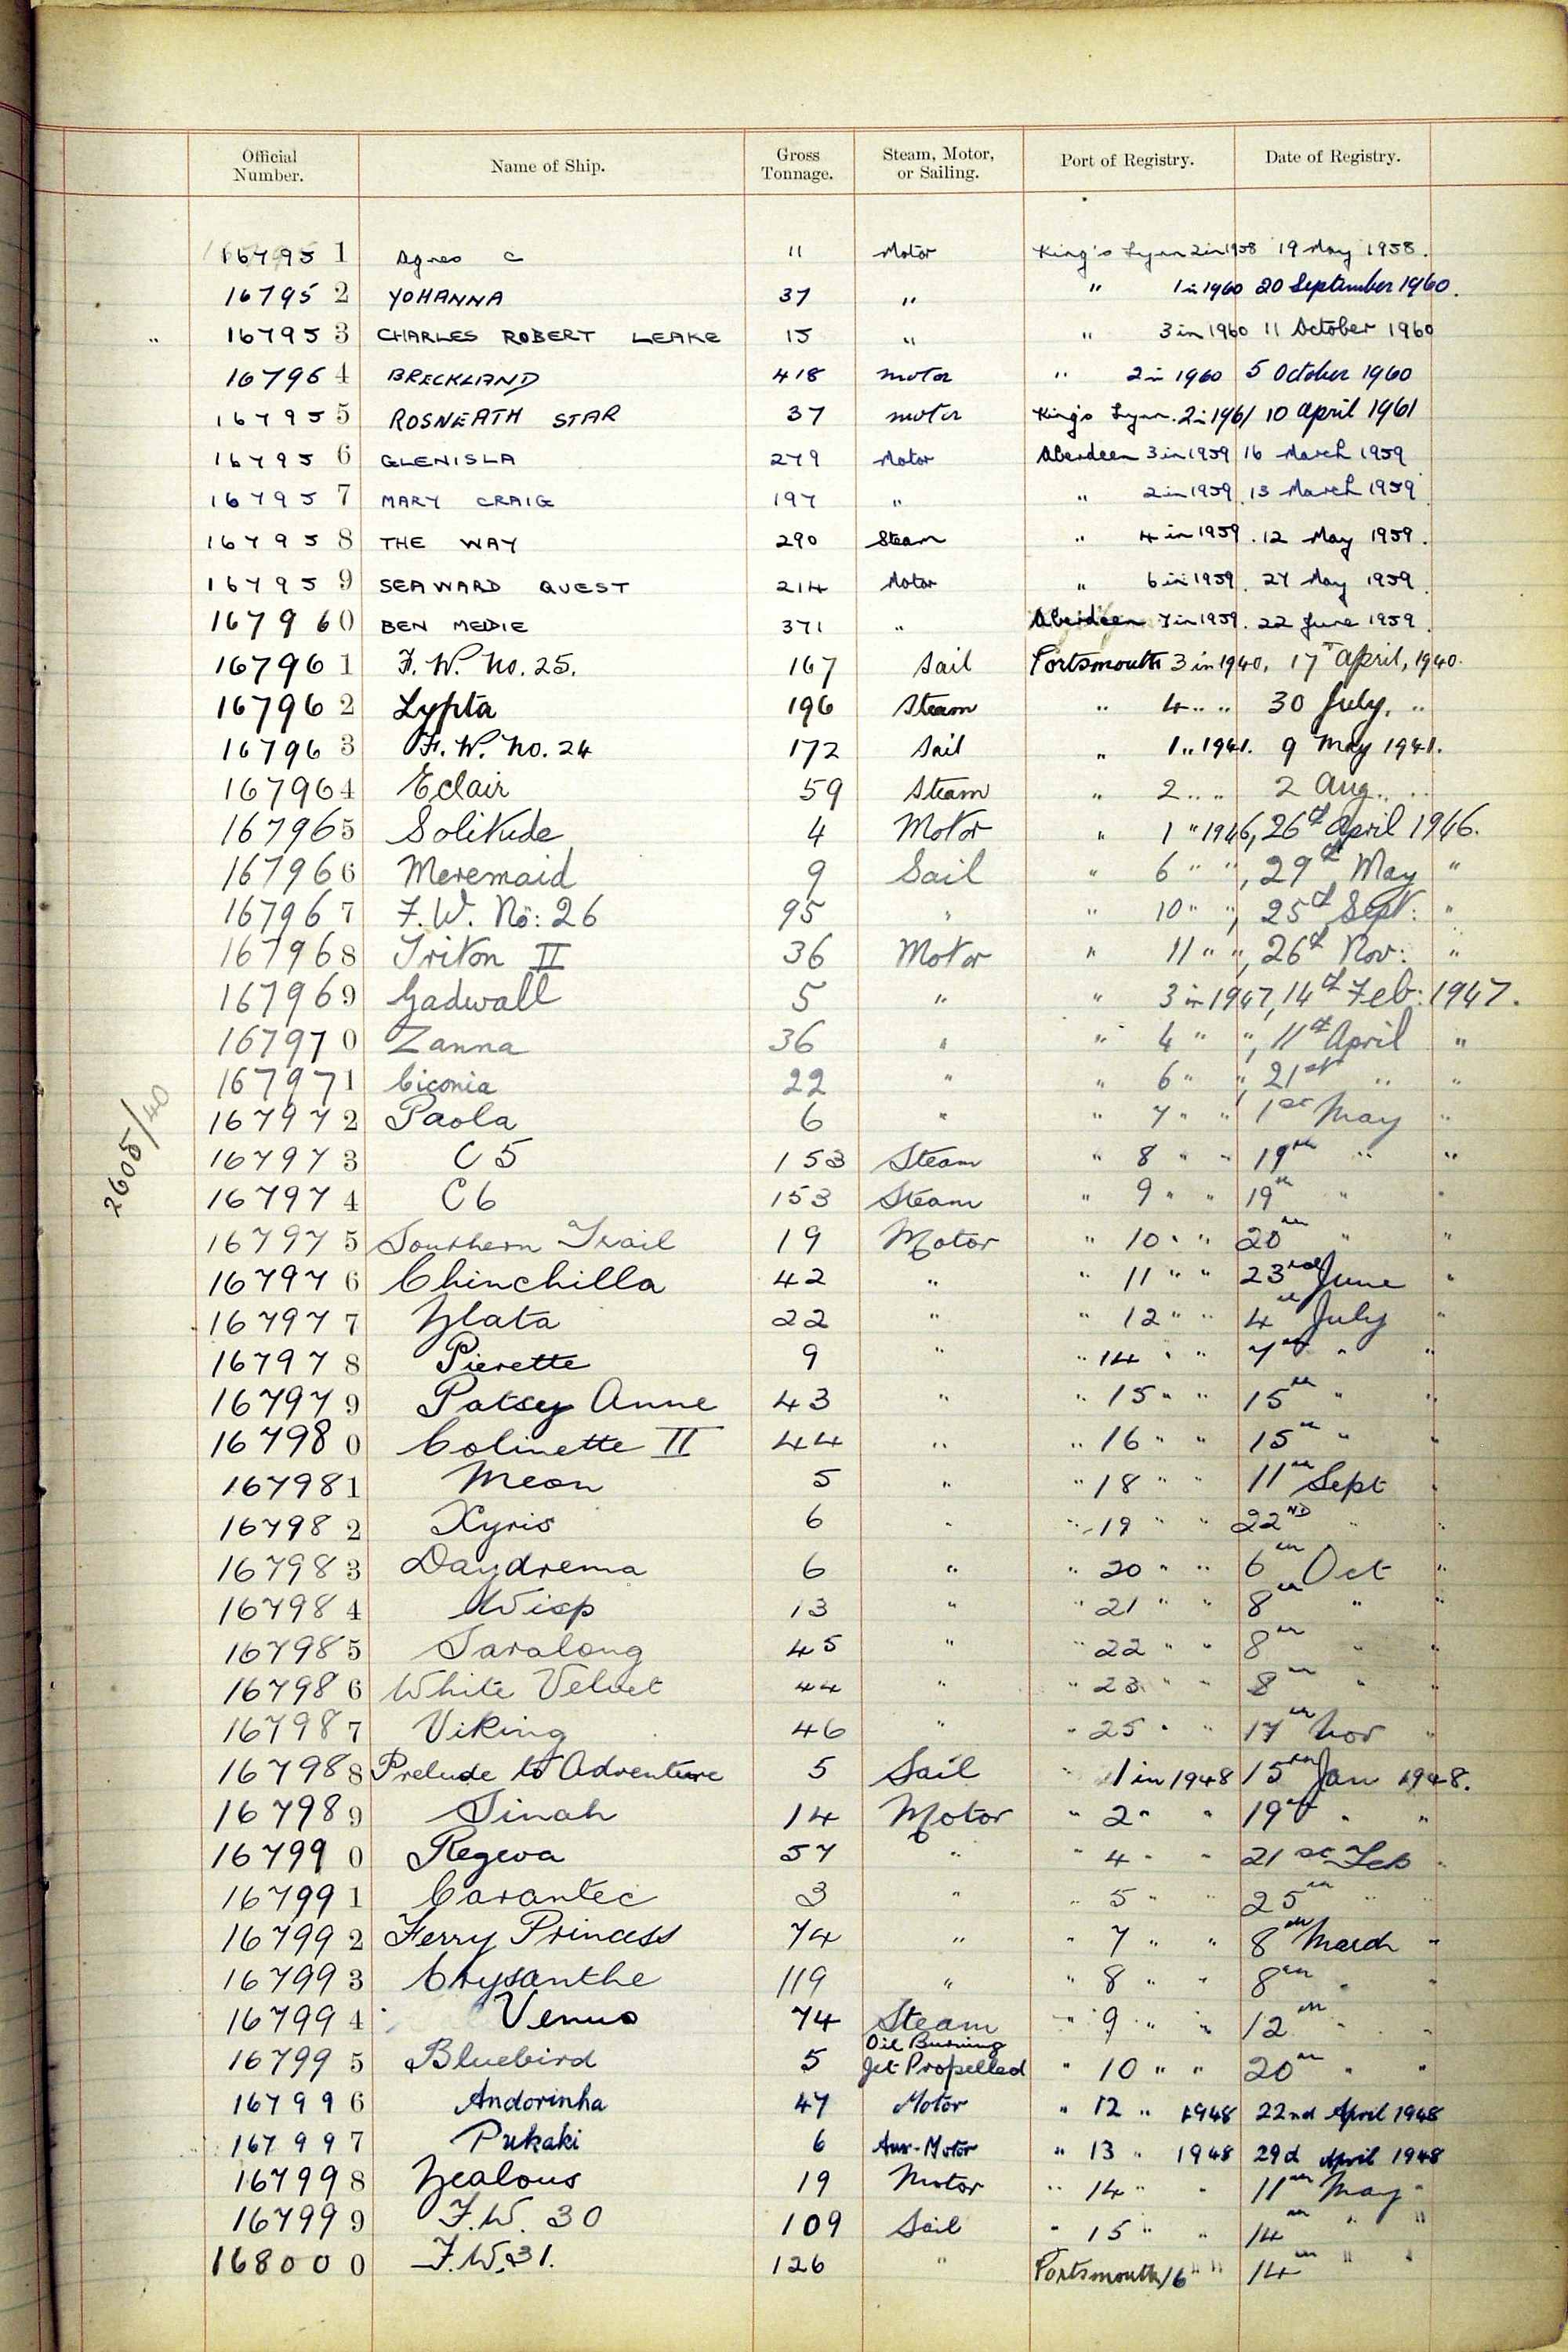 Official Number. Name of Ship. Gross Tonnage. Steam, Motor, or Sailing. Port of Registry. Date of Registry.
167951 Agnes C 11 Motor King's Lynn 2 in 1958 19 May 1958.
167952 YOHANNA 37 " " 1 in 1960 20 September 1960.
" 167953 CHARLES ROBERT LEAKE 15 " " 3 in 1960 11 October 1960
167964 BRECKLAND 418 motor " 2 in 1960 5 October 1960
167955 ROSNEATH STAR 37 motor King's Lynn. 2 in 1961 10 April 1961
167956 GLENISLA 279 Motor Aberdeen 3 in 1959 16 March 1959
167957 MARY CRAIG 197 " " 2 in 1959. 13 March 1959
167958 THE WAY 290 Steam " 4 in 1959. 12 May 1959.
167959 SEAWARD QUEST 214 Motor " 6 in 1959. 27 May 1959.
167960 BEN MEDIE 371 " Aberdeen 7 in 1959. 22 June 1959.
167961 F. W. No. 25. 167 Sail Portsmouth 3 in 1940, 17 April, 1940.
167962 Lypta 196 Steam " 4 " " 30 July, "
167963 F. W. No. 24 172 Sail " 1 " 1941. 9 May 1941.
167964 Eclair 59 Steam " 2 " " 2 Aug. "
167965 Solitude 4 Motor " 1 " 1946, 26th April 1946.
167966 Meremaid 9 Sail " 6 " ", 29th May "
167967 F. W. No: 26 95 " " 10 " ", 25th Sept: "
167968 Triton II 36 Motor " 11 " ", 26th Nov: "
167969 Gadwall 5 " " 3 in 1947, 14th Feb: 1947.
167970 Zanna 36 " " 4 " ", 11th April "
167971 Ciconia 22 " " 6 " ", 21st " "
167972 Paola 6 " " 7 " " 1st May "
167973 C 5 153 Steam " 8 " " 19th " "
167974 C 6 153 Steam " 9 " " 19th " "
2605/40
167975 Southern Trail 19 Motor " 10 " " 20th " "
167976 Chinchilla 42 " " 11 " " 23rd June "
167977 Zlata 22 " " 12 " " 4th July "
167978 Pierette 9 " " 14 " " 7th " "
167979 Patsey Anne 43 " " 15 " " 15th " "
167980 Colinette II 44 " " 16 " " 15th " "
167981 Meon 5 " " 18 " " 11th Sept "
167982 Xyris 6 " " 19 " " 22ND " "
167983 Daydrema 6 " " 20 " " 6th Oct "
167984 Wisp 13 " " 21 " " 8th " "
167985 Saralong 45 " " 22 " " 8th " "
167986 White Velvet 44 " " 23 " " 8th " "
167987 Viking 46 " " 25 " " 17th Nov "
167988 Prelude to Adventure 5 Sail " 1 in 1948 15th Jan 1948.
167989 Sinah 14 Motor " 2 " " 19th " "
167990 Regeva 57 " " 4 " " 21st Feb "
167991 Carantec 3 " " 5 " " 25th " "
167992 Ferry Princess 74 " " 7 " " 8th March "
167993 Crysanthe 119 " " 8 " " 8th " "
167994 Venus 74 Steam " 9 " " 12th " "
167995 Bluebird 5 Oil Burning Jet Propelled " 10 " " 20th " "
167996 Andorinha 47 Motor " 12 " 1948 22nd April 1948
167997 Pukaki 6 Aux-Motor " 13 " 1948 29d April 1948
167998 Zealous 19 Motor " 14 " " 11th May "
167999 F.W. 30 109 Sail " 15 " " 14th " "
168000 F.W. 31. 126 " Portsmouth 16 " " 14th " "